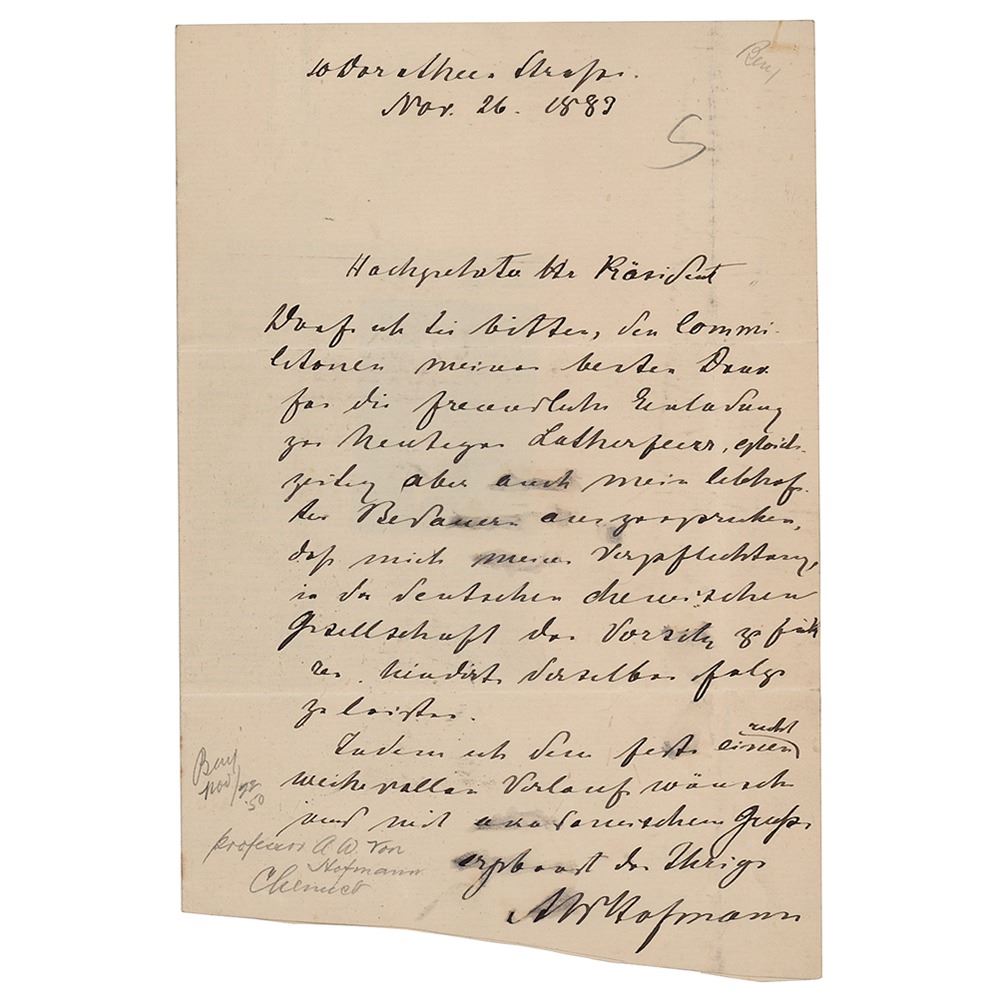 10 Dorotheen Strasse.
Nov. 26. 1883
Berl
S
Hochgeehrter Hr Präsident
Darf ich Sie bitten, den Commi-
litonen meinen besten Dank
für die freundliche Einladung
zur heutigen Lutherfeier, gleich-
zeitig aber auch mein lebhaf-
tes Bedauern auszusprechen,
daß mich meine Verpflichtung,
in der deutschen chemischen
Gesellschaft den Vorsitz zu füh-
ren, hindert derselben Folge
zu leisten.
Indem ich dem Feste einen recht
weihevollen Verlauf wünsche
und mit academischem Gruße
ergebenst der Ihrige
AWHofmann
Nov/92
.50
Professor A. W. von
Hofmann
Chemist